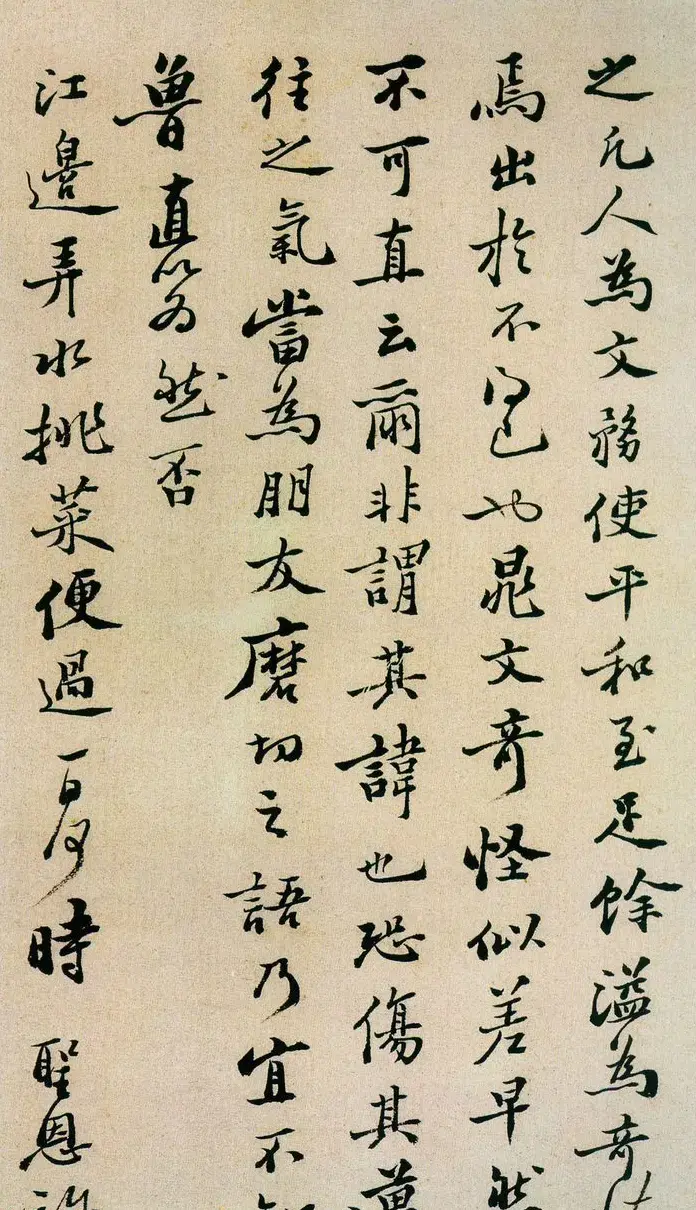 之凡人為文務使平和至足餘溢為奇
焉出於不得已也晁文奇怪似差早然
不可直云爾非謂其諱也恐傷其邁
往之氣當為朋友磨切之語乃宜不
魯直以為然否
江邊弄水挑菜便過一日何時 聖恩